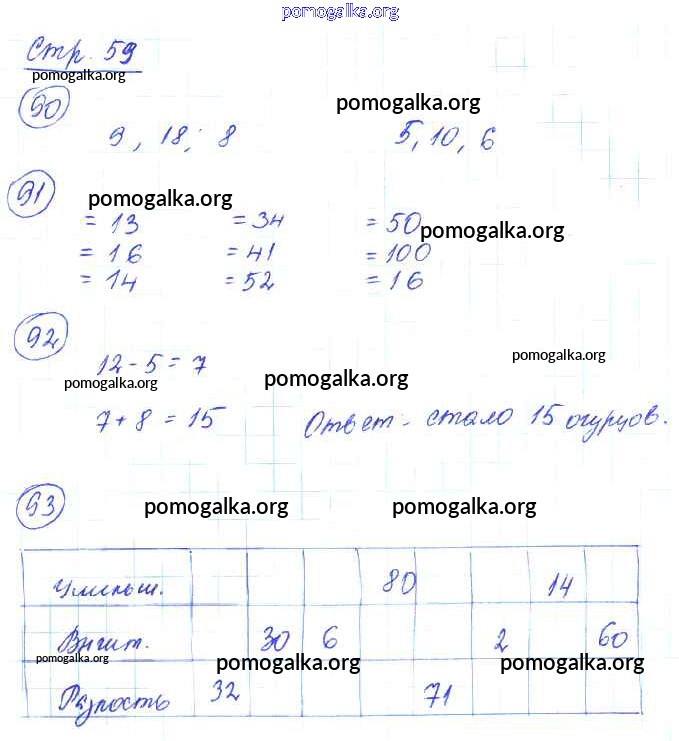 pomogalka.org
Стр. 59
pomogalka.org
90
pomogalka.org
9, 18; 8 5, 10, 6
91
pomogalka.org
= 13 = 34 = 50
pomogalka.org
= 16 = 41 = 100
= 14 = 52 = 16
92
12 - 5 = 7
pomogalka.org
pomogalka.org
pomogalka.org
7 + 8 = 15 Ответ - стало 15 огурцов.
93
pomogalka.org pomogalka.org
Уменьш. 80 14
Вычит. 30 6 2 60
pomogalka.org
pomogalka.org pomogalka.org
Разность 32 71